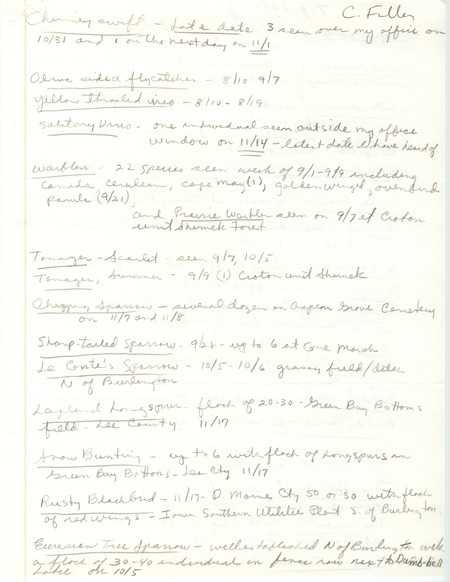 C. Fuller
Chimney swift - Late date 3 seen over my office on
10/31 and 1 on the next day on 11/1
Olive sided flycatcher - 8/10 9/7
Yellow throated vireo - 8/10 - 8/19
Solitary Vireo - one individual seen outside my office
window on 11/14 - latest date I have heard of
Warblers - 22 species seen week of 9/1-9/9 including
Canada, cerulean, cape may (1), golden winged, ovenbird
parula (9/21),
and Prairie Warbler seen on 9/7 at Croton
unit Shimek Forest
Tanager - Scarlet - seen 9/7, 10/5
Tanager, Summer - 9/9 (1) Croton unit Shimek
Chipping Sparrow - several dozen in Aspen Grove Cemetery
on 11/7 and 11/8
Sharp-tailed Sparrow - 9/28 - up to 6 at Cone Marsh
Le Conte's Sparrow - 10/5 - 10/6 grassy field/
N of Burlington
Lapland Longspur - flock of 20-30 - Green Bay Bottoms
field - Lee County 11/17
Snow Bunting - up to 6 with flock of longspurs in
Green Bay Bottoms - Lee Cty 11/17
Rusty Blackbird - 11/17 - D. Moines Cty 50 or so with flock
of redwings - Iowa Southern Utilities Plant S. of Burlington
Eurasian Tree Sparrow - well established N of Burlington with
a flock of 30-40 individuals in fence row next to Dumb-bell
Lake on 10/5